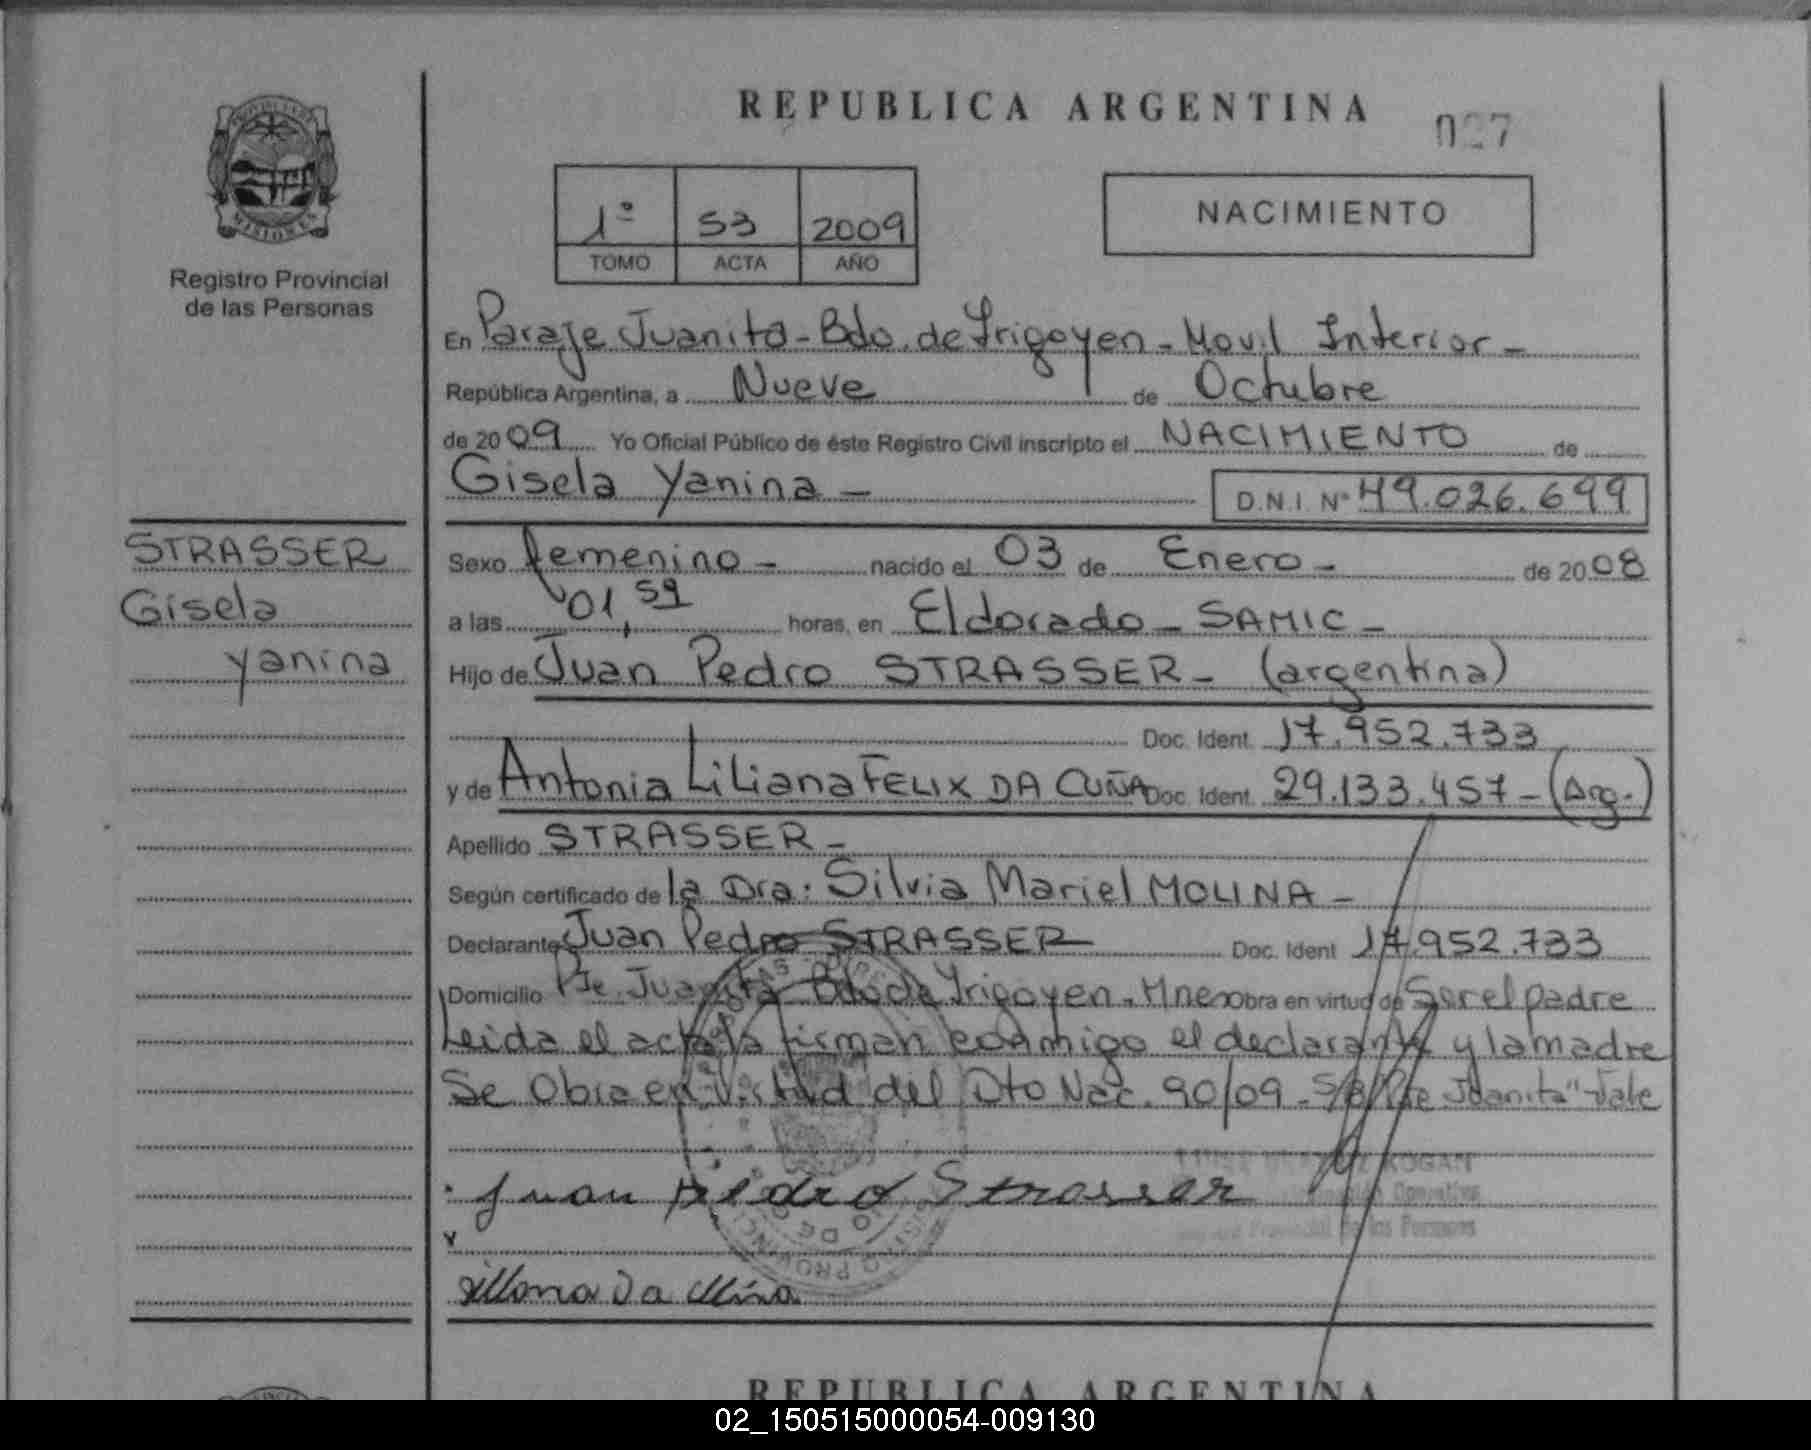 REPUBLICA ARGENTINA
027
PROVINCIA DE
MISIONES
Registro Provincial
de las Personas
1° 53 2009
TOMO ACTA AÑO
NACIMIENTO
En Paraje Juanita - Bdo. de Irigoyen - Movil Interior -
República Argentina, a Nueve de Octubre
de 20 09 Yo Oficial Público de éste Registro Civil inscripto el NACIMIENTO de
Gisela Yanina - D.N.I. N° 49.026.699
STRASSER
Gisela
yanina
Sexo femenino - nacido el 03 de Enero - de 20 08
a las 01,59 horas, en Eldorado - SAMIC -
Hijo de Juan Pedro STRASSER - (argentina)
Doc. Ident. 17.952.733
y de Antonia Liliana FELIX DA CUÑA Doc. Ident. 29.133.457 - (Arg.)
Apellido STRASSER -
Según certificado de la Dra: Silvia Mariel MOLINA -
Declarante Juan Pedro STRASSER Doc. Ident 17.952.733
Domicilio Pje. Juanita Bdo de Irigoyen - Mnes obra en virtud de Ser el padre
Leida el acta la firman conmigo el declarante y la madre
Se Obra en Virtud del Dto Nac. 90/09 - S/B "Pje Juanita" - Vale
KOGAN
Operativa
Provincial de las Personas
Juan Pedro Strasser
REPUBLICA ARGENTINA
02_150515000054-009130